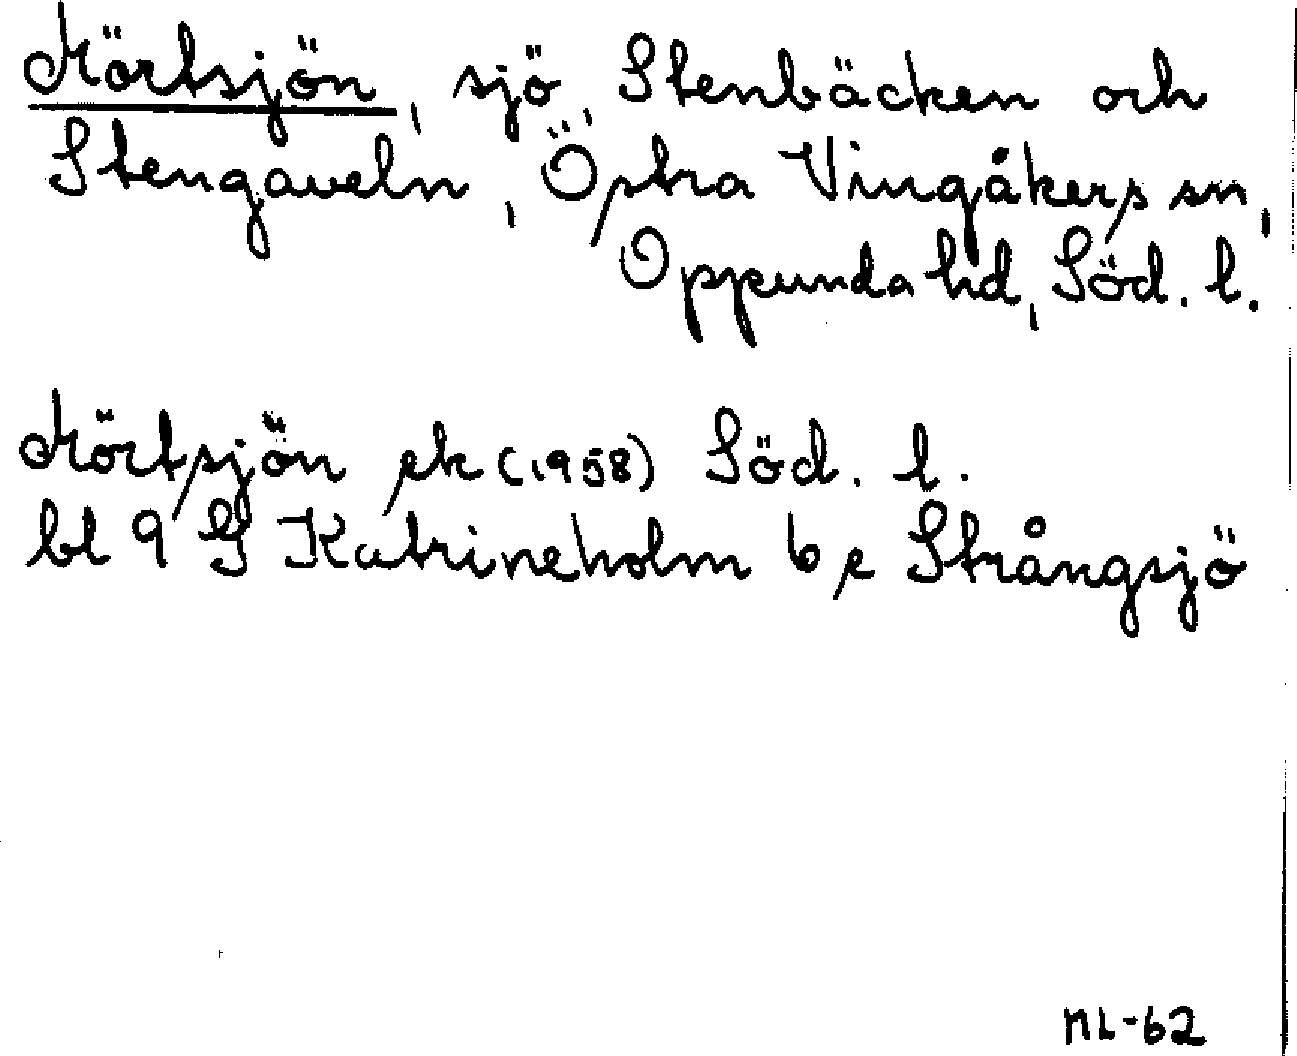 Mörtsjön, sjö, Stenbäcken och
Stengaveln, Östra Vingåkers sn,
Oppunda hd, Söd. l.
Mörtsjön ek (1958) Söd. l.
bl 9 G Katrineholm 6 e Strångsjö
NL-62